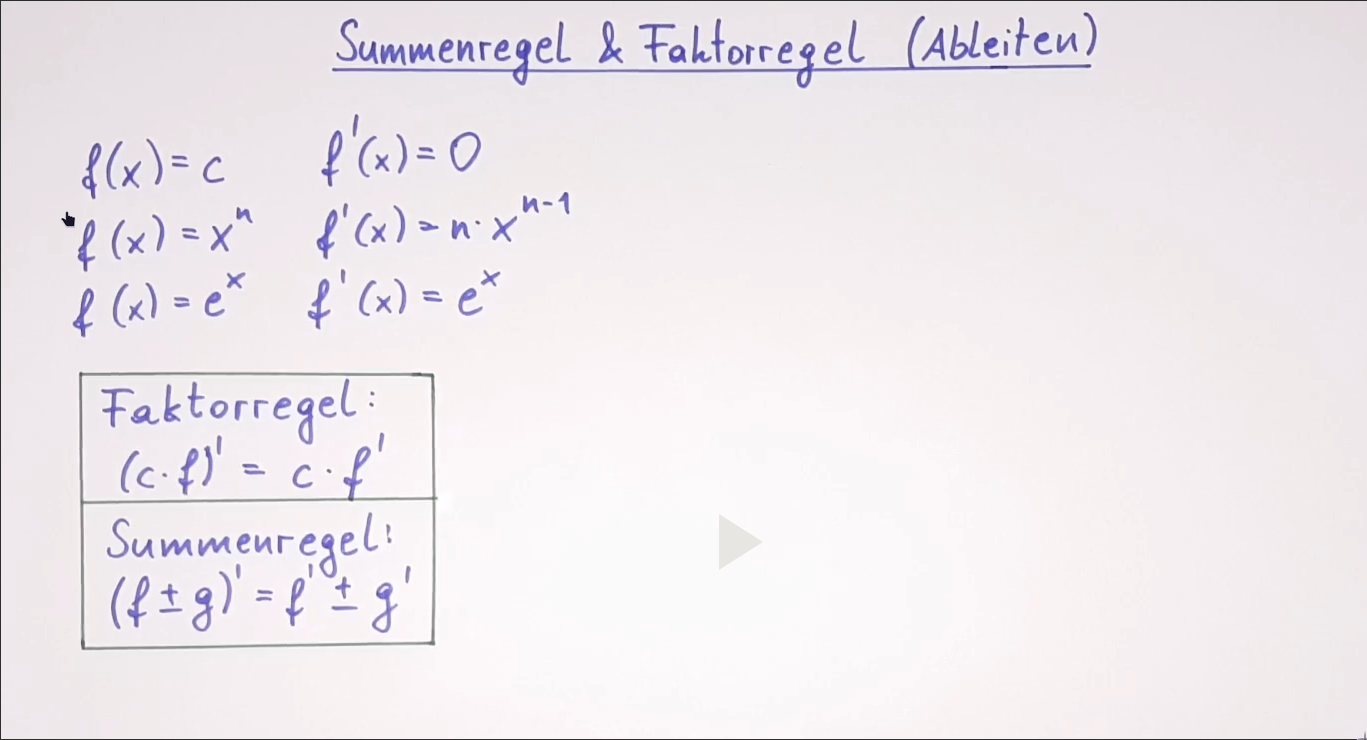 Summenregel & Faktorregel (Ableiten)
f(x) = c f'(x) = 0
f(x) = xⁿ f'(x) = n · xⁿ⁻¹
f(x) = eˣ f'(x) = eˣ
Faktorregel:
(c·f)' = c · f'
Summenregel:
(f ± g)' = f' ± g'